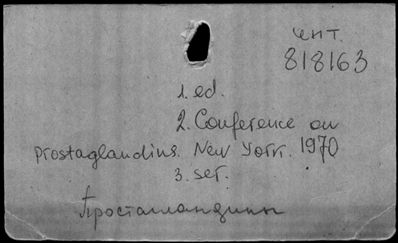 чит.
818163
1. ed.
2. Conference on
Prostaglandins. New York. 1970
3. ser.
Простагландины